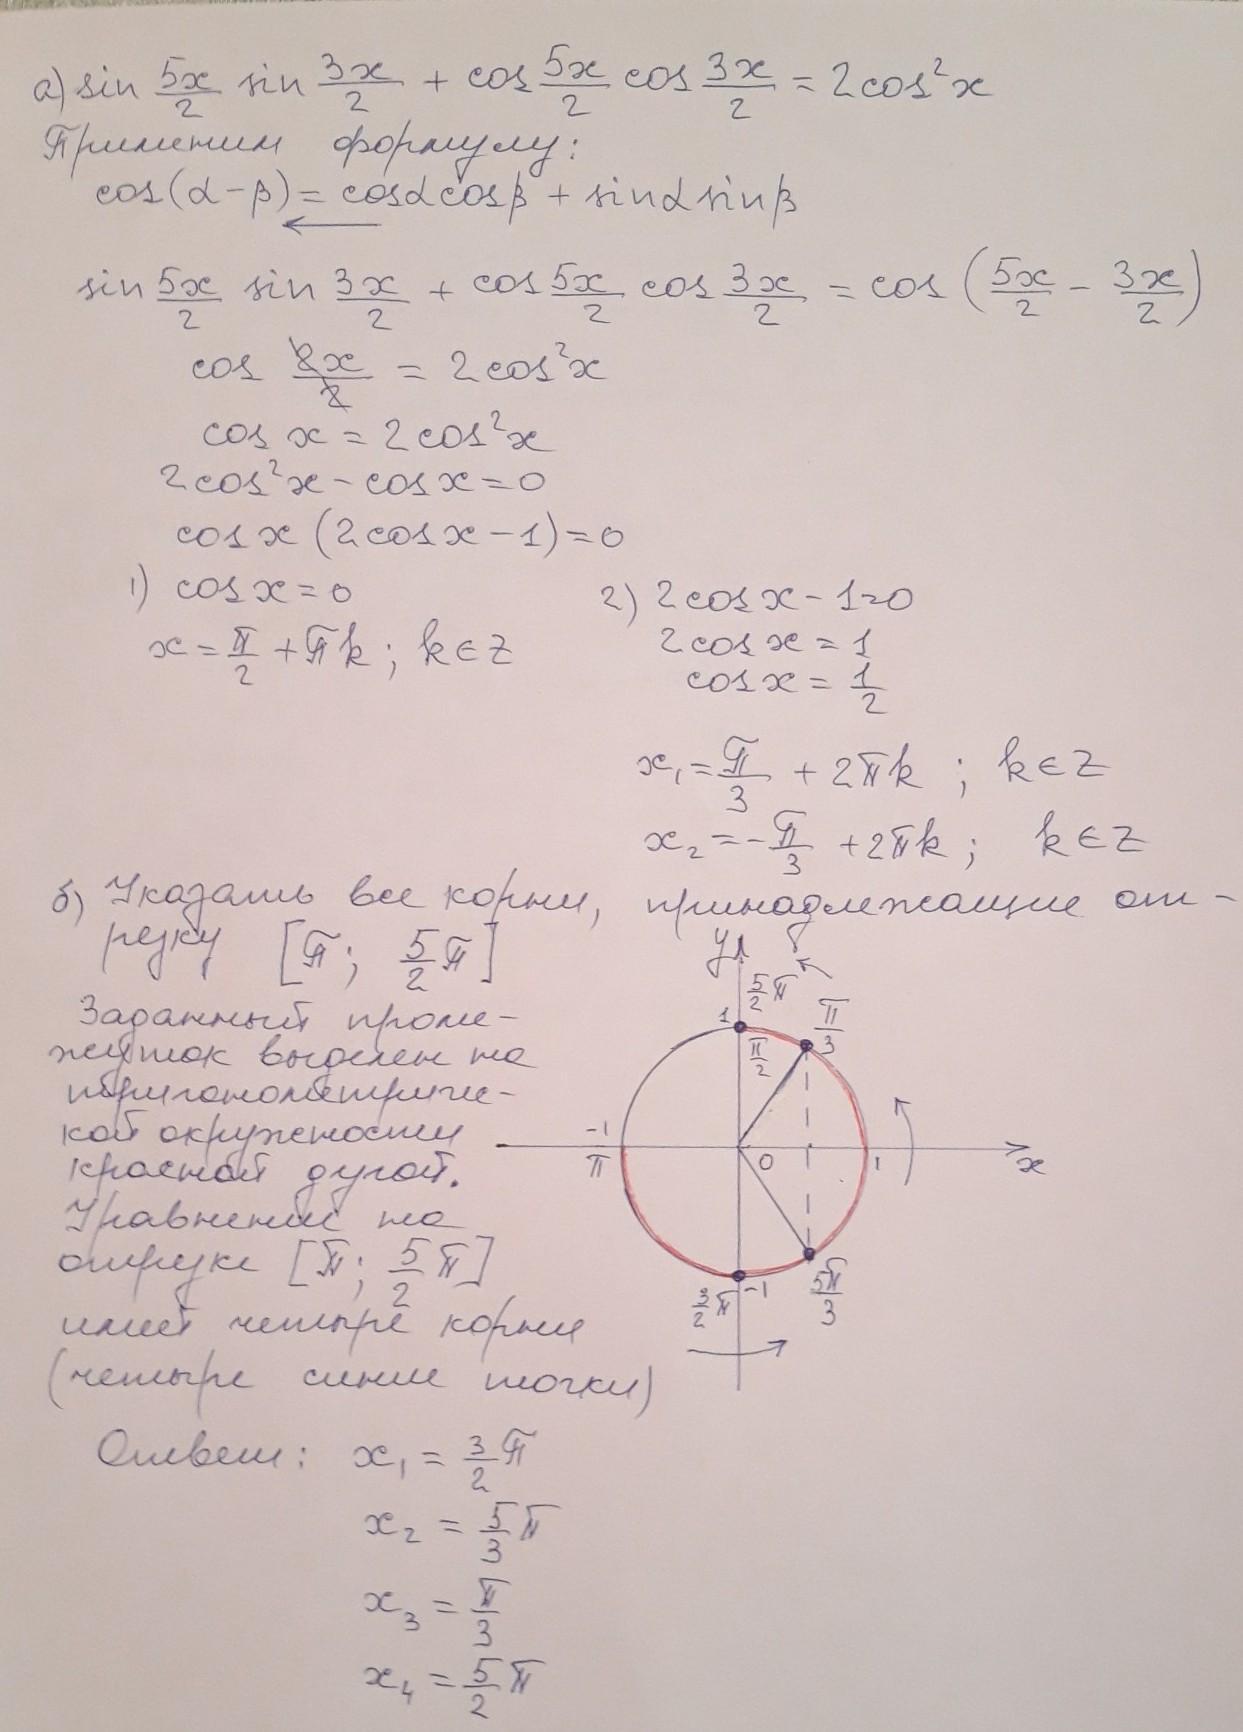 а) sin 5x/2 sin 3x/2 + cos 5x/2 cos 3x/2 = 2cos²x
Применим формулу:
cos(α-β) = cosα cosβ + sinα sinβ
sin 5x/2 sin 3x/2 + cos 5x/2 cos 3x/2 = cos (5x/2 - 3x/2)
cos 2x/2 = 2cos²x
cos x = 2cos²x
2cos²x - cos x = 0
cos x (2cos x - 1) = 0
1) cos x = 0
x = π/2 + πk ; k ∈ Z
2) 2cos x - 1 = 0
2cos x = 1
cos x = 1/2
x₁ = π/3 + 2πk ; k ∈ Z
x₂ = -π/3 + 2πk ; k ∈ Z
б) Указать все корни, принадлежащие от-
резку [π; 5/2 π]
Заданный проме-
жуток выделен на
тригонометричес-
кой окружности
красной дугой.
Уравнение на
отрезке [π; 5/2 π]
имеет четыре корня
(четыре синие точки)
y
5/2 π
1
π/2
π/3
-1
π
0
1
x
3/2 π
-1
5π/3
Ответ: x₁ = 3/2 π
x₂ = 5/3 π
x₃ = π/3
x₄ = 5/2 π